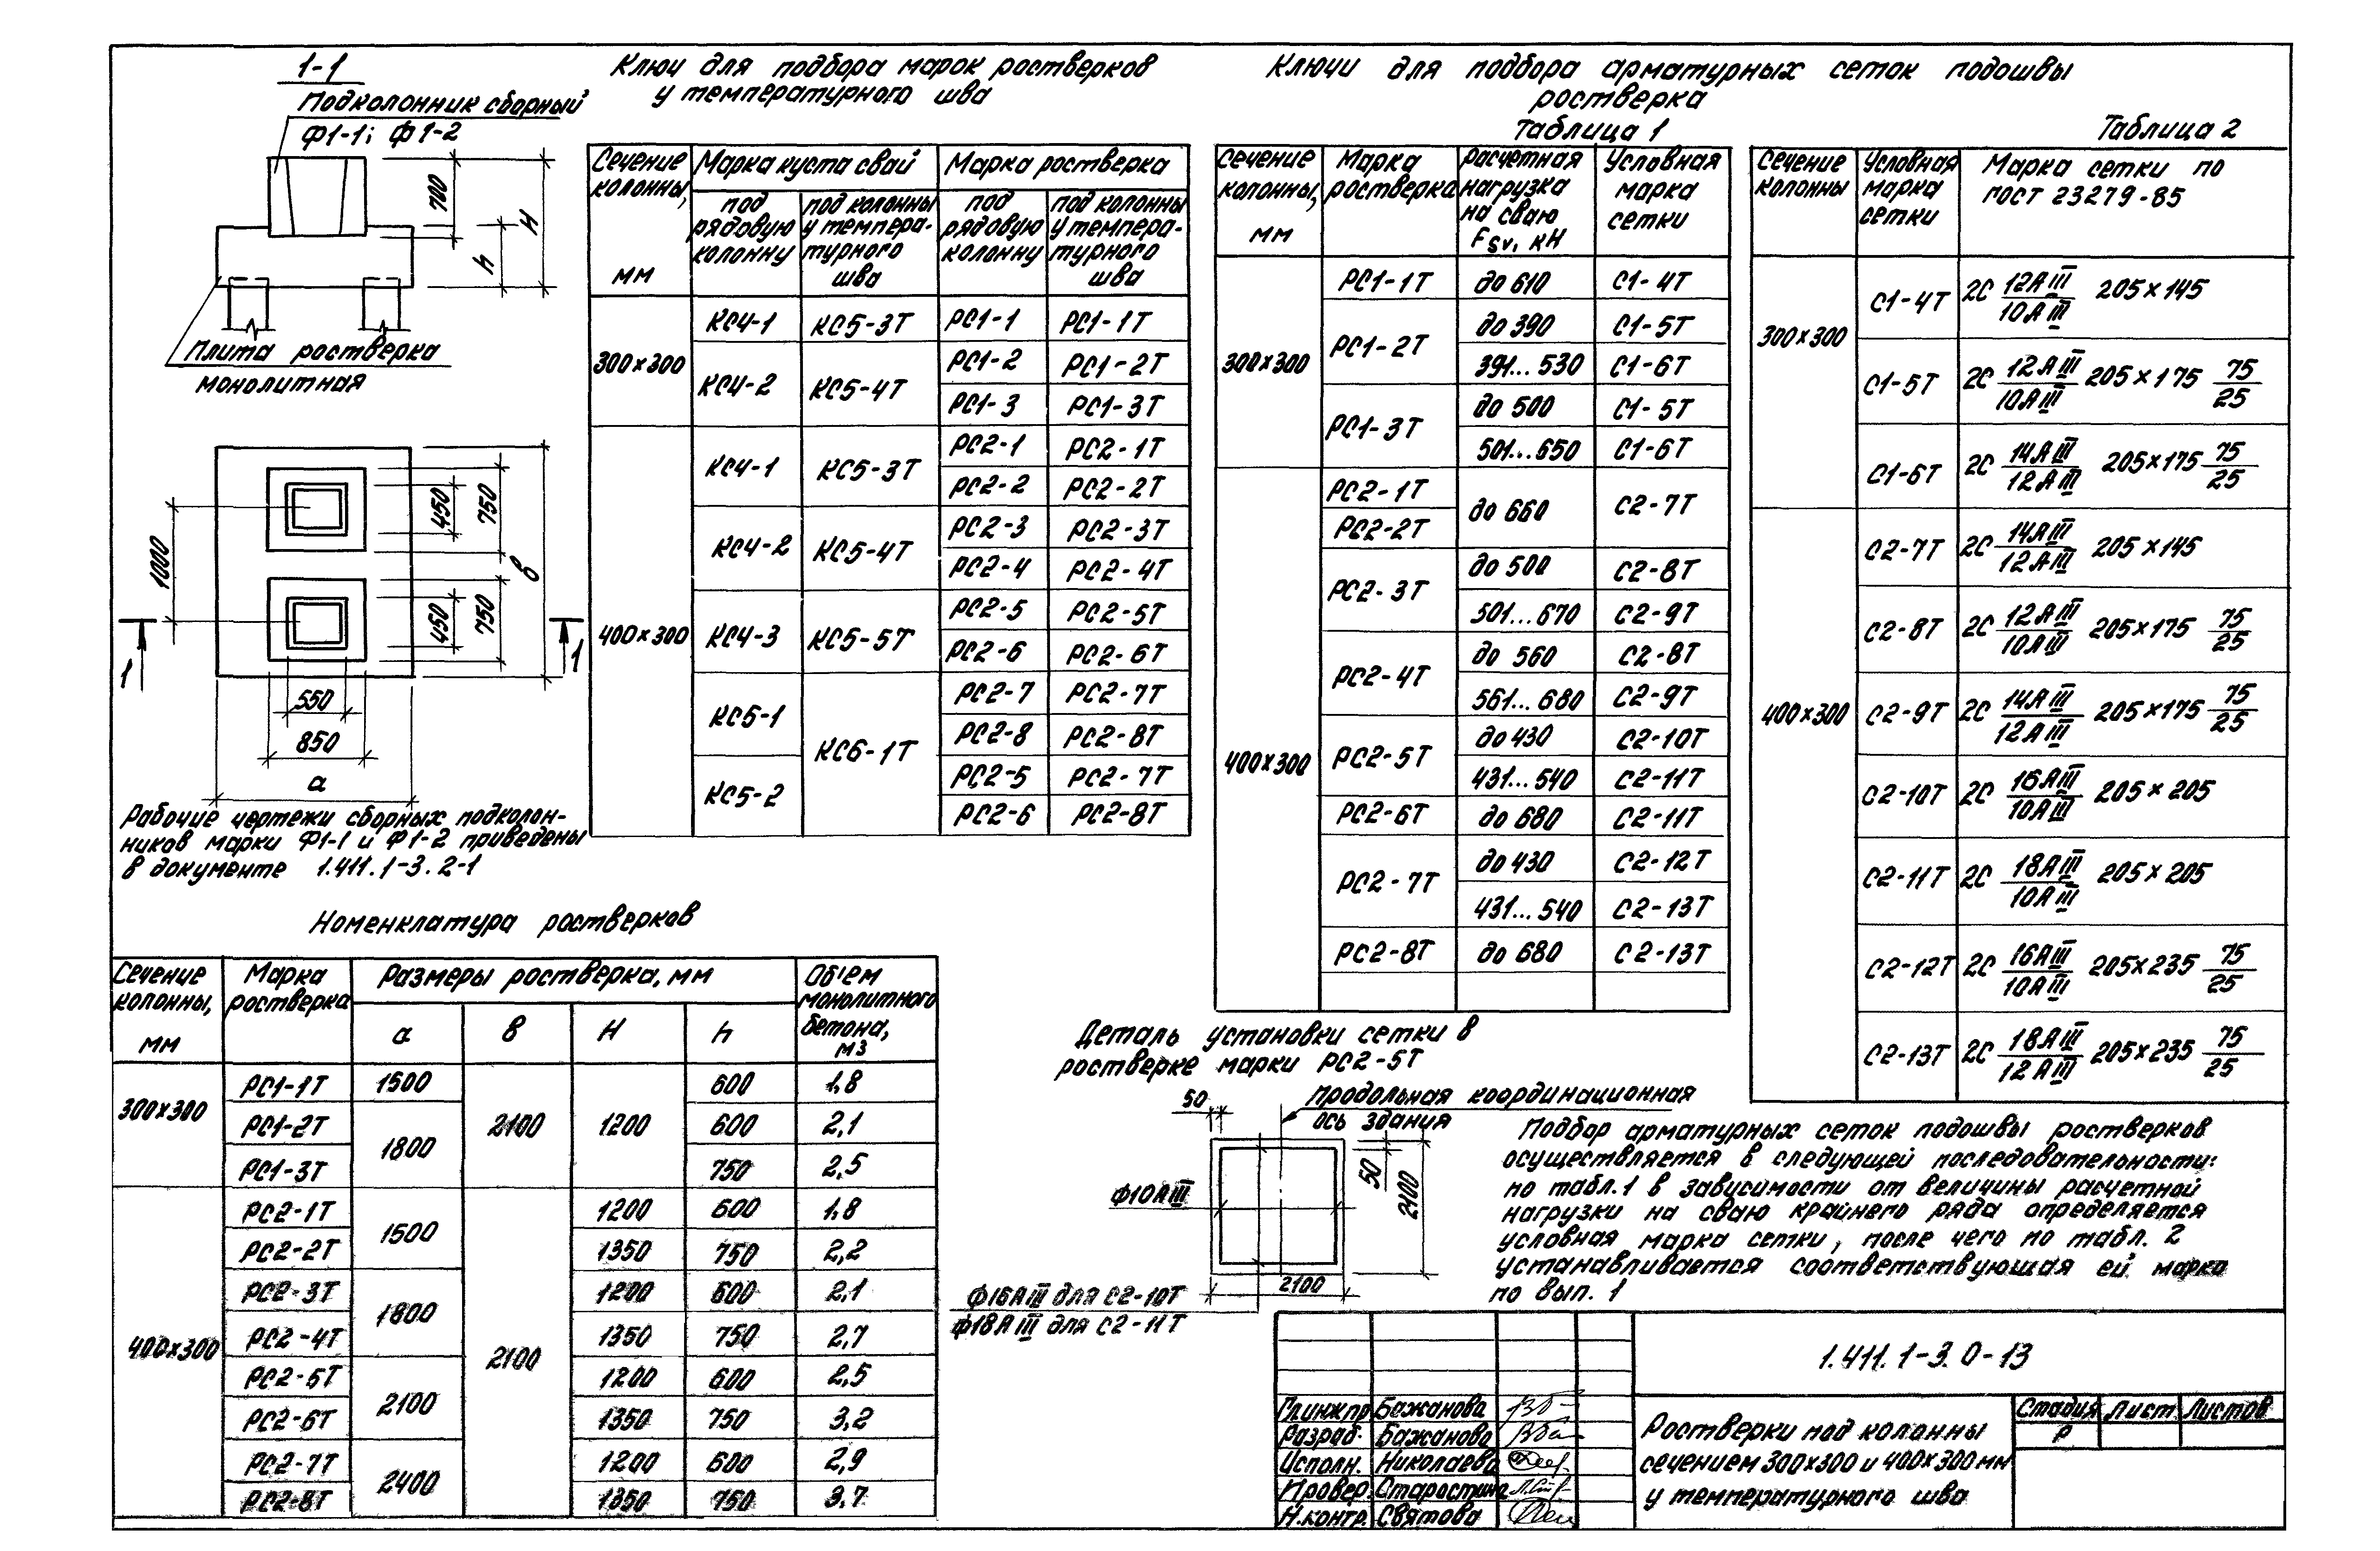 1-1
Подколонник сборный
Ф1-1; Ф1-2
700
h
H
Плита ростверка
монолитная
1000
450
750
450
750
в
1
1
550
850
а
Рабочие чертежи сборных подколон-
ников марки Ф1-1 и Ф1-2 приведены
в документе 1.411.1-3.2-1
Ключ для подбора марок ростверков
у температурного шва
Сечение колонны, мм | Марка куста свай | Марка ростверка
под рядовую колонну | под колонны у темпера-турного шва | под рядовую колонну | под колонны у темпера-турного шва
300×300 | КС4-1 | КС5-3Т | РС1-1 | РС1-1Т
КС4-2 | КС5-4Т | РС1-2 | РС1-2Т
РС1-3 | РС1-3Т
400×300 | КС4-1 | КС5-3Т | РС2-1 | РС2-1Т
РС2-2 | РС2-2Т
КС4-2 | КС5-4Т | РС2-3 | РС2-3Т
РС2-4 | РС2-4Т
КС4-3 | КС5-5Т | РС2-5 | РС2-5Т
РС2-6 | РС2-6Т
КС5-1 | КС6-1Т | РС2-7 | РС2-7Т
РС2-8 | РС2-8Т
КС5-2 | РС2-5 | РС2-7Т
РС2-6 | РС2-8Т
Ключи для подбора арматурных сеток подошвы
ростверка
Таблица 1
Сечение колонны, мм | Марка ростверка | Расчетная нагрузка на сваю Fsv, кН | Условная марка сетки
300×300 | РС1-1Т | до 610 | С1-4Т
РС1-2Т | до 390 | С1-5Т
391...530 | С1-6Т
РС1-3Т | до 500 | С1-5Т
501...650 | С1-6Т
400×300 | РС2-1Т | до 660 | С2-7Т
РС2-2Т
РС2-3Т | до 500 | С2-8Т
501...670 | С2-9Т
РС2-4Т | до 560 | С2-8Т
561...680 | С2-9Т
РС2-5Т | до 430 | С2-10Т
431...540 | С2-11Т
РС2-6Т | до 680 | С2-11Т
РС2-7Т | до 430 | С2-12Т
431...540 | С2-13Т
РС2-8Т | до 680 | С2-13Т
Таблица 2
Сечение колонны | Условная марка сетки | Марка сетки по ГОСТ 23279-85
300×300 | С1-4Т | 2С 12АIII/10АIII 205×145
С1-5Т | 2С 12АIII/10АIII 205×175 75/25
С1-6Т | 2С 14АIII/12АIII 205×175 75/25
400×300 | С2-7Т | 2С 14АIII/12АIII 205×145
С2-8Т | 2С 12АIII/10АIII 205×175 75/25
С2-9Т | 2С 14АIII/12АIII 205×175 75/25
С2-10Т | 2С 16АIII/10АIII 205×205
С2-11Т | 2С 18АIII/10АIII 205×205
С2-12Т | 2С 16АIII/10АIII 205×235 75/25
С2-13Т | 2С 18АIII/12АIII 205×235 75/25
Номенклатура ростверков
Сечение колонны, мм | Марка ростверка | Размеры ростверка, мм | Объем монолитного бетона, м3
а | в | Н | h
300×300 | РС1-1Т | 1500 | 2100 | 1200 | 600 | 1,8
РС1-2Т | 1800 | 600 | 2,1
РС1-3Т | 750 | 2,5
400×300 | РС2-1Т | 1500 | 2100 | 1200 | 600 | 1,8
РС2-2Т | 1350 | 750 | 2,2
РС2-3Т | 1800 | 1200 | 600 | 2,1
РС2-4Т | 1350 | 750 | 2,7
РС2-5Т | 2100 | 1200 | 600 | 2,5
РС2-6Т | 1350 | 750 | 3,2
РС2-7Т | 2400 | 1200 | 600 | 2,9
РС2-8Т | 1350 | 750 | 3,7
Деталь установки сетки в
ростверке марки РС2-5Т
50
Продольная координационная
ось здания
50
2100
ф10АIII
2100
ф16АIII для С2-10Т
ф18АIII для С2-11Т
Подбор арматурных сеток подошвы ростверков
осуществляется в следующей последовательности:
по табл.1 в зависимости от величины расчетной
нагрузки на сваю крайнего ряда определяется
условная марка сетки, после чего по табл. 2
устанавливается соответствующая ей марка
по вып. 1
1.411.1-3.0-13
Гл.инж.пр. Бажанова
Разраб. Бажанова
Исполн. Николаева
Провер. Старостина
Н.контр. Святова
Ростверки под колонны
сечением 300×300 и 400×300 мм
у температурного шва
Стадия | Лист | Листов
Р